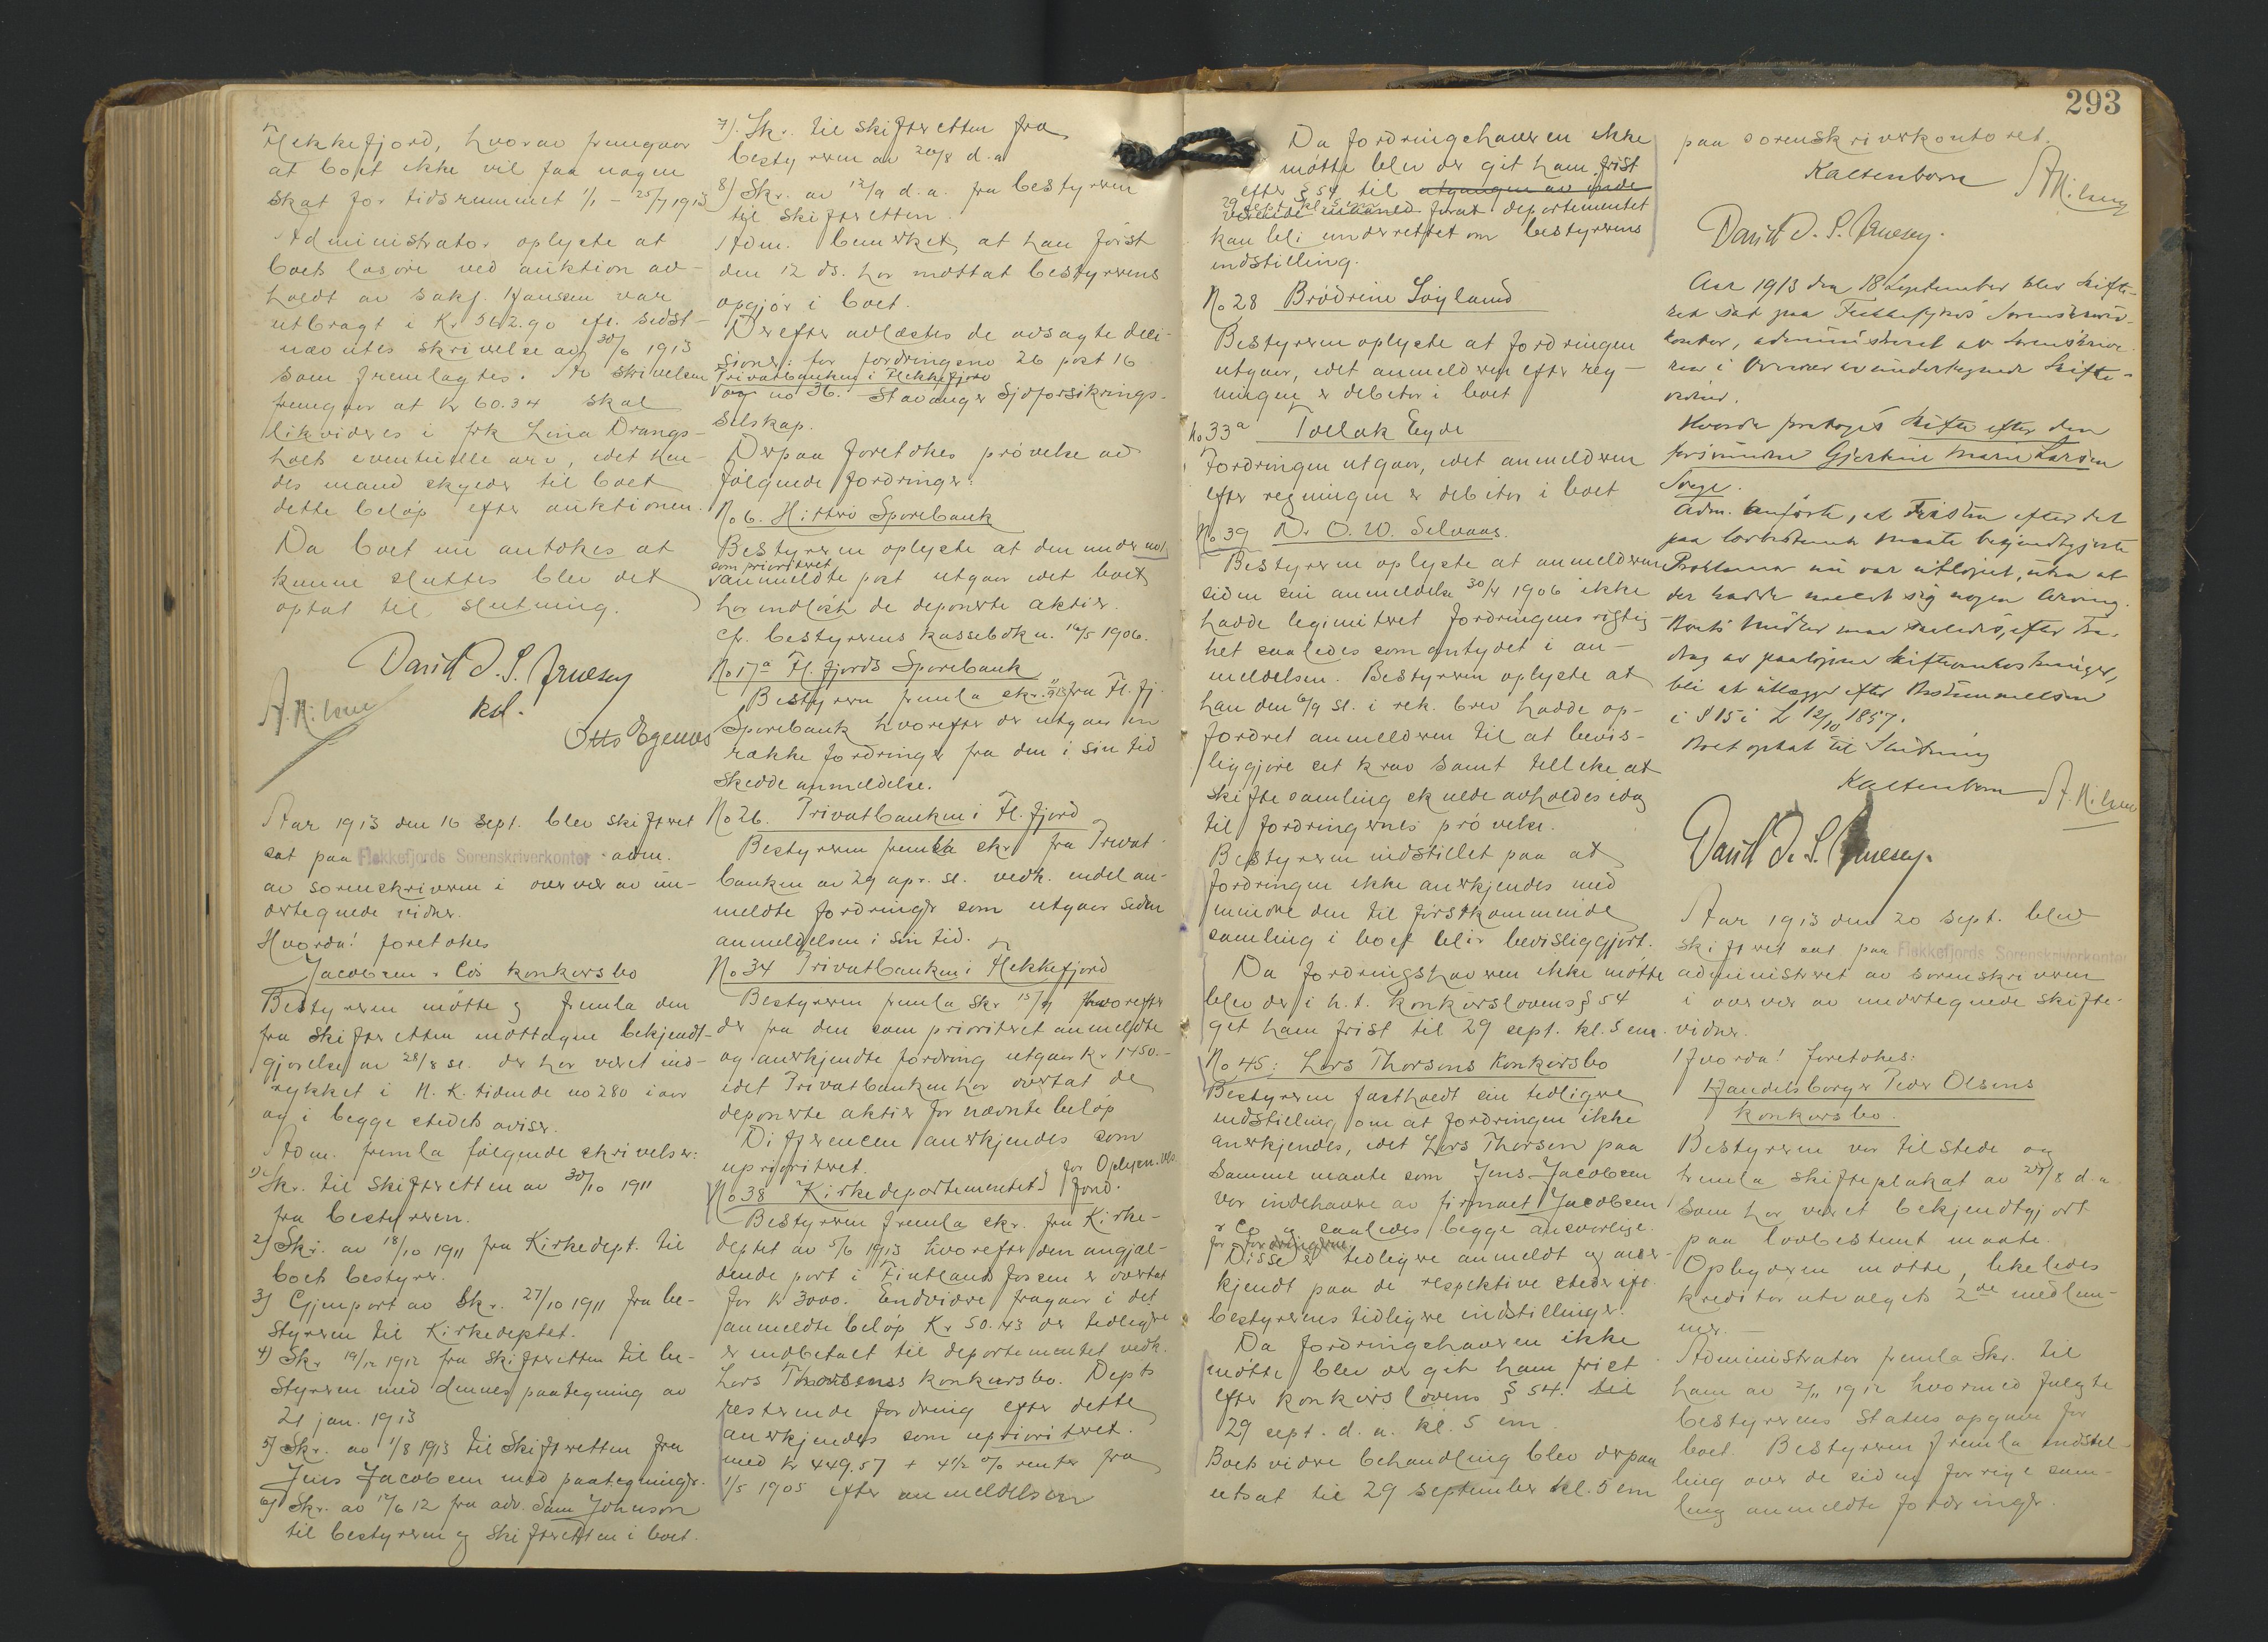 Flekkefjord, hvorav fremgaar
at boet ikke vil faa nogen
skat for tidsrummet 1/1 - 25/7 1913
Administrator oplyste at
boets løsøre ved auktion av-
holdt av sakf. Hansen var
utbragt i Kr 562.90 eft. sidst-
nævntes skrivelse av 30/6 1913
som fremlagtes. Av skrivelsen
fremgaar at Kr 60.34 skal
likvideres i frk Lina Drangs-
holts eventuelle arv, idet hen-
des mand skyder til boet
dette beløp efter auktionen.
Da boet nu antokes at
kunne sluttes blev det
optat til slutning.
David D. S.
A. Nilsen
Otto Egenes
Aar 1913 den 16 sept. blev skifteret
sat paa Flekkefjords Sorenskriverkontor adm.
av sorenskriveren i overvær av un-
dertegnede vidner.
Hvorda! foretokes
Jacobsen & Cos konkursbo
Bestyreren møtte og fremla den
fra skifteretten mottagne bekjendt-
gjørelse av 28/8 sl. der har været ind-
rykket i N. K. tidende no 280 iaar
og i begge stedets aviser.
Adm. fremla følgende skrivelser:
1) Skr. til skifteretten av 30/10 1911
fra bestyreren.
2) Skr. av 18/10 1911 fra Kirkedept. til
boets bestyrer.
3) Gjenpart av Skr. 27/10 1911 fra be-
styreren til Kirkedeptet.
4) Skr. 19/12 1912 fra skifteretten til be-
styreren med dennes paategning av
21 jan. 1913
5) Skr. av 1/8 1913 til Skifteretten fra
Jens Jacobsen med paategninger.
6) Skr. av 17/6 12 fra adv. Sam Johnson
til bestyreren og skifteretten i boet.
7). Skr. til skifteretten fra
bestyreren av 20/8 d.a
8) Skr. av 12/9 d.a. fra bestyreren
til skifteretten.
Adm. bemerket, at han først
den 12 ds. har mottat bestyrerens
opgjør i boet.
Derefter avlæstes de avsagte deci-
sioner: for fordringene 26 post 16
Privatbanken i Flekkefjord
og no 36. Stavanger Sjøforsikrings-
selskap.
Derpaa foretokes prøvelse av
følgende fordringer:
No 6. Hitterø Sparebank
Bestyreren oplyste at den under
som prioriteret
anmeldte post utgaar idet boet
har indløst de deponerte aktier.
cfr. bestyrerens kassebok u. 16/5 1906.
No 17a Fl. fjords Sparebank
Bestyreren fremla skr. fra Fl. fj.
Sparebank hvorefter der utgaar en
række fordringer fra den i sin tid
skedde anmeldelse.
No 26. Privatbanken i Fl. fjord
Bestyreren fremla skr. fra Privat-
banken av 29 apr. sl. vedk. endel an-
meldte fordringer som utgaar siden
anmeldelsen i sin tid.
No 34 Privatbanken i Flekkefjord
Bestyreren fremla skr 15/9 hvorefter
der fra den som prioriteret anmeldte
og anerkjendte fordring utgaar kr 1450.-
idet Privatbanken har overtat de
deponerte aktier for nævnte beløp
Differencen anerkjendes som
uprioriteret.
No 38 Kirkedepartementet for Oplysn.væs. fond.
Bestyreren fremla skr. fra Kirke-
deptet av 5/6 1913 hvorefter den angjæl-
dende part i Fintlandsfossen er overtat
for kr 3000. Endvidere fragaar i det
anmeldte beløp Kr 50.43 der tidligere
er indbetalt til departementet vedk.
Lars Thorsens konkursbo. Depts
resterende fordring efter dette
anerkjendes som uprioriteret.
med kr 449.57 + 4 1/2 % renter fra
1/5 1905 efter anmeldelsen
293
Da fordringshaveren ikke
møtte blev der git ham frist
efter § 54 til utgangen av inde
29 sept. kl. 5 em
værende maaned forat departementet
kan bli underrettet om bestyrerens
indstilling.
No 28 Brødrene Løyland
Bestyreren oplyste at fordringen
utgaar, idet anmelderen efter reg-
ningen er debitor i boet
No 33a Tollak Eyde
Fordringen utgaar, idet anmelderen
efter regningen er debitor i boet
No 39 Dr. O. W. Selvaas.
Bestyreren oplyste at anmelderen
siden sin anmeldelse 30/4 1906 ikke
hadde legimiteret fordringens rigtig-
het saaledes som antydet i an-
meldelsen. Bestyreren oplyste at
han den 6/9 sl. i rek. brev hadde op-
fordret anmelderen til at bevis-
liggjøre set krav samt tillike at
skiftesamling skulde avholdes idag
til fordringernes prøvelse.
Bestyreren indstillet paa at
fordringen ikke anerkjendes med
mindre den til førstkommende
samling i boet blir bevisliggjort.
Da fordringshaveren ikke møtte
blev der i h.t. Konkurslovens § 54
get ham frist til 29 sept. kl. 5 em.
No 45: Lars Thorsens Konkursbo
Bestyreren fastholdt sin tidligere
indstilling om at fordringen ikke
anerkjendes, idet Lars Thorsen paa
samme maate som Jens Jacobsen
var indehavere av firmaet Jacobsen
& Co og saaledes begge ansvarlige.
for fordringerne
Disse er tidligere anmeldt og aner-
kjendt paa de respektive steder eft.
bestyrerens tidligere indstillinger.
Da fordringshaveren ikke
møtte blev der git ham frist
efter konkurslovens § 54. til
29 sept. d.a. kl. 5 em.
Boets videre behandling blev derpaa
utsat til 29 september kl. 5 em
paa sorenskriverkontoret.
Kaltenborn
A. Nilsen
David D. S.
Aar 1913 den 18 September blev Skifte-
ret sat paa Flekkefjords Sorenskriver-
kontor, administreret av Sorenskrive-
ren i Overvær av undertegnede Skifte-
vidner.
Hvorda foretoges Skifte efter den
forsvundne Gjertine Marie Larsen
Svege.
Adm. anførte, at Fristen efter det
paa lovbestemte Maate bekjendtgjorte
Proklama nu var utløpet, uten at
der hadde meldt sig nogen Arving.
Boets Midler maa saaledes, efter Fra-
drag av paaløpne Skifteomkostninger,
bli at utlægge efter Bestemmelsen
i § 15 i L 12/10 1857.
Boet optat til Slutning
Kaltenborn
A. Nilsen
David D. S.
Aar 1913 den 20 sept. blev
skifteret sat paa Flekkefjords Sorenskriverkontor
administreret av sorenskriveren
i overvær av undertegnede skifte-
vidner.
Hvorda! foretokes:
Handelsborger Peder Olsens
konkursbo.
Bestyreren var tilstede og
fremla skifteplakat av 28/8 d.a.
som har været bekjendtgjort
paa lovbestemt maate.
Opbyderen møtte, likeledes
kreditorutvalgets 2de medlem-
mer.
Administrator fremla Skr. til
ham av 2/11 1912 hvormed fulgte
bestyrerens Status opgave for
boet. Bestyreren fremla indstil-
ling over de siden forrige sam-
ling anmeldte fordringer.